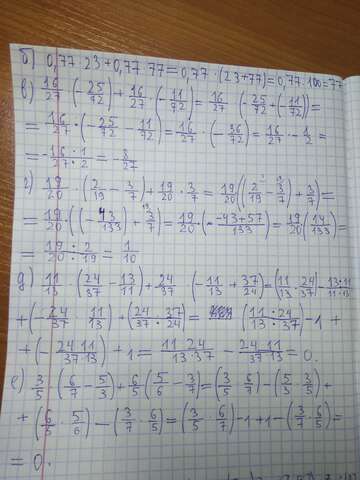 б) 0,77 · 23 + 0,77 · 77 = 0,77 · (23+77) = 0,77 · 100 = 77
в) 16/27 · (- 25/72) + 16/27 · (- 11/72) = 16/27 · (- 25/72 + (- 11/72)) =
= 16/27 · (- 25/72 - 11/72) = 16/27 · (- 36/72) = 16/27 · - 1/2 =
= - 16 · 1/27 · 2 = - 8/27
г) 19/20 · (2/19 - 3/7) + 19/20 · 3/7 = 19/20 ((2/19 - 3/7) + 3/7) =
= 19/20 · ((- 43/133) + 3/7) = 19/20 · (- -43+57/133) = 19/20 (14/133) =
= 19/20 · 2/19 = 1/10
д) 11/13 · (24/37 - 13/11) + 24/37 · (- 11/13 + 37/24) = (11/13 · 24/37) - 13·11/11·13
+ (- 24/37 · 11/13) + (24/37 · 37/24) = (11 · 24/13 · 37) - 1 +
+ (- 24·11/37·13) + 1 = 11·24/13·37 - 24·11/37·13 = 0.
е) 3/5 · (6/7 - 5/3) + 6/5 (5/6 - 3/7) = (3/5 · 6/7) - (5/3 · 3/5) +
+ (6/5 · 5/6) - (3/7 · 6/5) = (3/5 · 6/7) - 1 + 1 - (3/7 · 6/5) =
= 0.